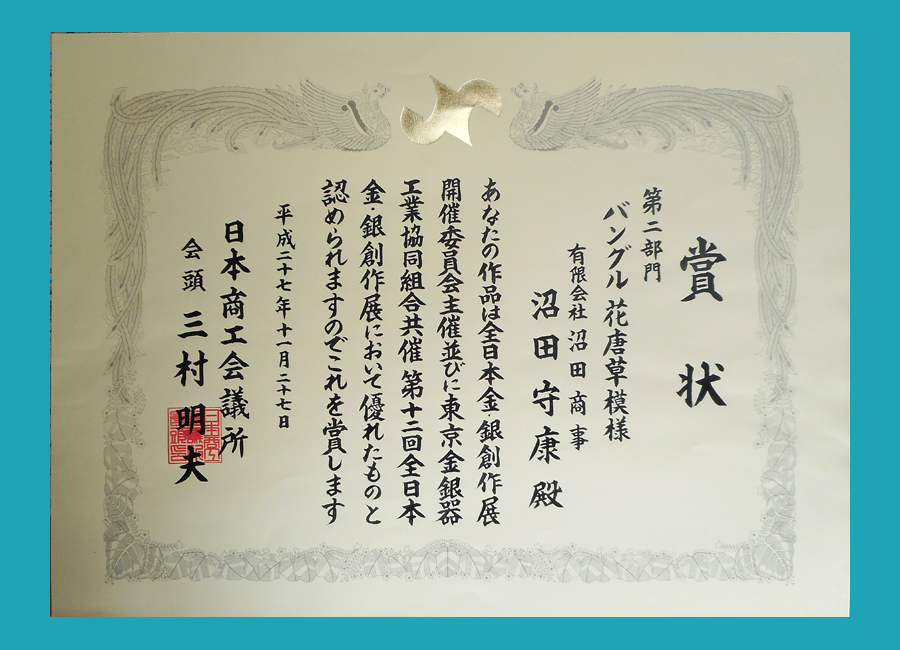 賞状
第二部門
バングル 花唐草模様
有限会社 沼田商事
沼田守康殿
あなたの作品は全日本金銀創作展
開催委員会主催並びに東京金銀器
工業協同組合共催 第十二回全日本
金・銀創作展において優れたものと
認められますのでこれを賞します
平成二十七年十一月二十七日
日本商工会議所
会頭 三村明夫